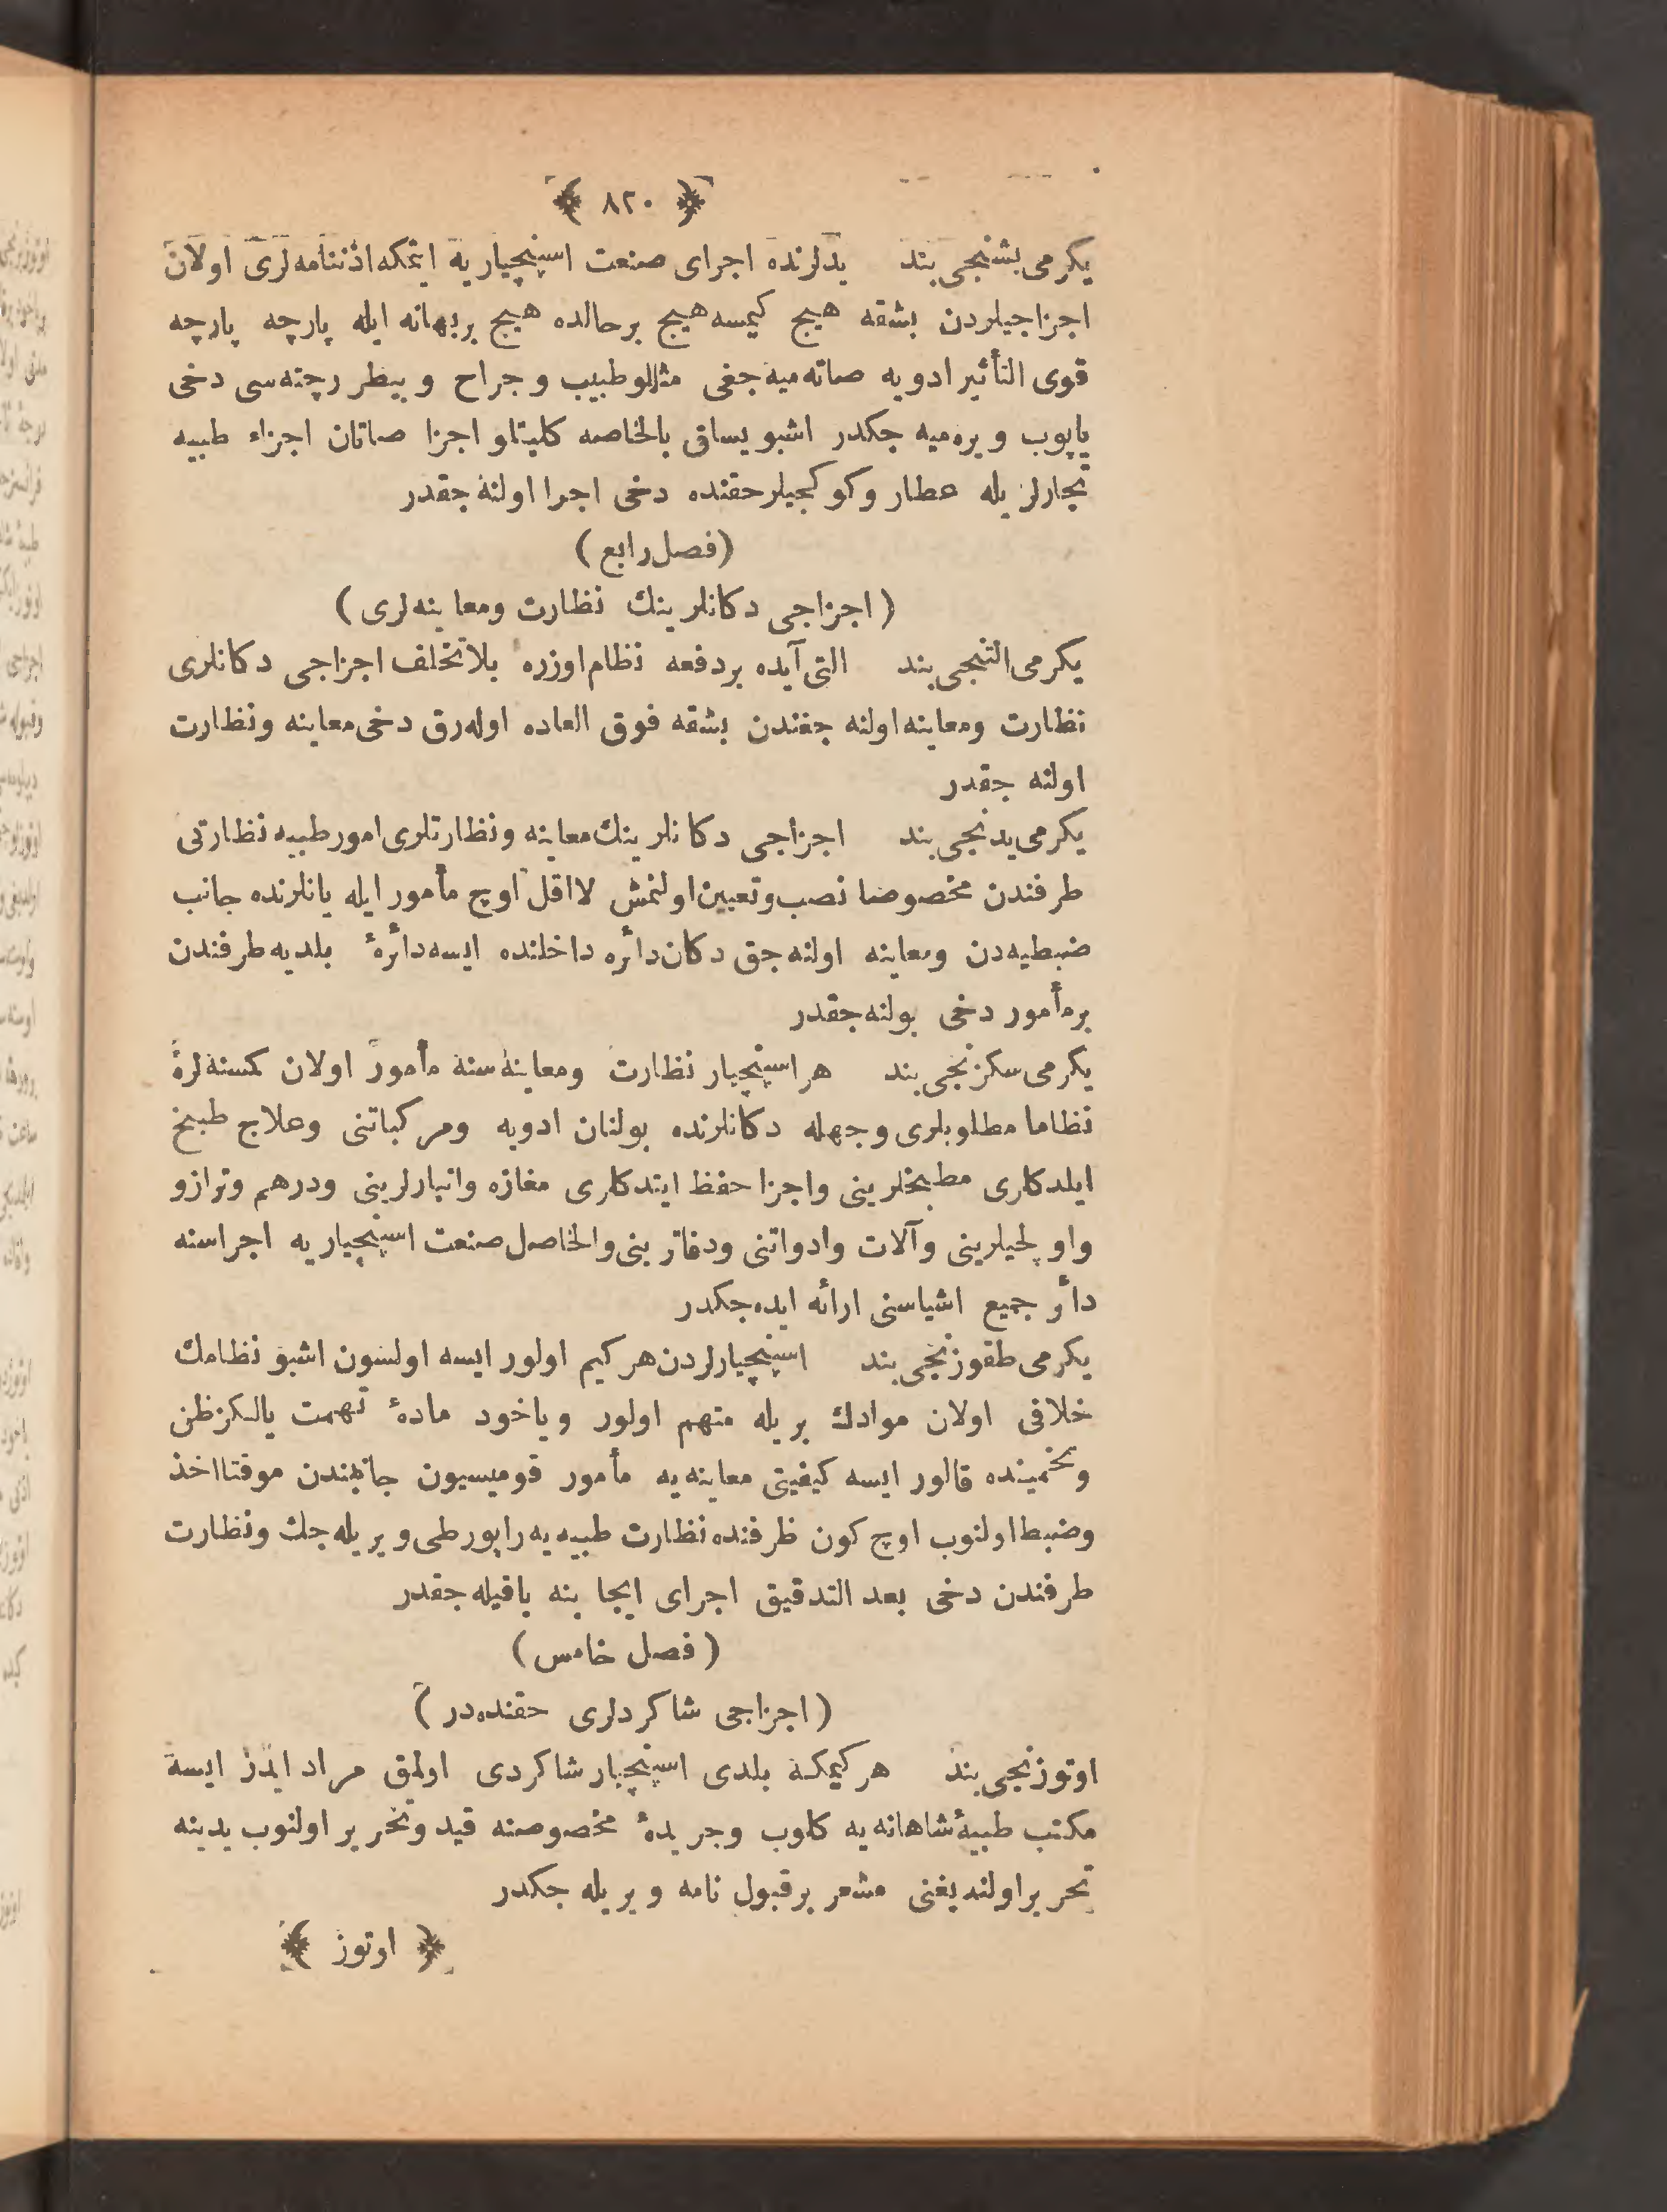 ٨٢٠
يكرمی بشنجی بند يدلرنده اجرای صنعت اسپنچياريه ايتمكه اذننامه‌لری اولان
اجزاجيلردن بشقه هيچ كيمسه هيچ برحالده هيچ بربهانه ايله پارچه پارچه
قوی التأثير ادويه صاته‌ميه‌جغی مثللو طبيب وجراح وبيطر رچته‌سی دخی
ياپوب ويره‌ميه جكدر اشبو يساق بالخاصه كليتلو اجزا صاتان اجزاء طبيه
تجارلريله عطار وكوكجيلر حقنده دخی اجرا اولنه جقدر
(فصل رابع)
(اجزاجی دكانلرينك نظارت ومعاينه‌لری)
يكرمی التنجی بند التی آيده بردفعه نظام اوزره بلاتخلف اجزاجی دكانلری
نظارت ومعاينه اولنه جغندن بشقه فوق العاده اوله‌رق دخی معاينه ونظارت
اولنه جقدر
يكرمی يدنجی بند اجزاجی دكانلرينك معاينه ونظارتلری امور طبيه نظارتی
طرفندن مخصوصا نصب وتعيين اولنمش لااقل اوچ مأمور ايله يانلرنده جانب
ضبطيه‌دن ومعاينه اولنه جق دكان دائره داخلنده ايسه دائرهٔ بلديه طرفندن
برمأمور دخی بولنه جقدر
يكرمی سكزنجی بند هر اسپنچيار نظارت ومعاينه‌سنه مأمور اولان كمسنه‌لره
نظاما مطلوبلری وجهله دكانلرنده بولنان ادويه ومركباتنی وعلاج طبخ
ايلدكلری مطبخلرينی واجزا حفظ ايتدكلری مغازه وانبارلرينی ودرهم وترازو
واولچيلرينی وآلات وادواتنی ودفاترينی والحاصل صنعت اسپنچياريه اجراسنه
دائر جميع اشياسنی ارائه ايده‌جكدر
يكرمی طقوزنجی بند اسپنچيارلردن هركيم اولور ايسه اولسون اشبو نظامك
خلافی اولان موادك بريله متهم اولور وياخود مادهٔ تهمت يالكز ظن
وتخمينده قالور ايسه كيفيتی معاينه‌يه مأمور قوميسيون جانبندن موقتا اخذ
وضبط اولنوب اوچ كون ظرفنده نظارت طبيه‌يه راپورطی ويريله‌جك ونظارت
طرفندن دخی بعد التدقيق اجرای ايجابنه باقيله جقدر
(فصل خامس)
(اجزاجی شاكردلری حقنده‌در)
اوتوزنجی بند هركيمكه بلدی اسپنچيار شاكردی اولمق مراد ايدر ايسه
مكتب طبيهٔ شاهانه‌يه كلوب وجريدهٔ مخصوصنه قيد وتحرير اولنوب يدينه
تحرير اولنديغنی مشعر برقبول نامه ويريله جكدر
اوتوز